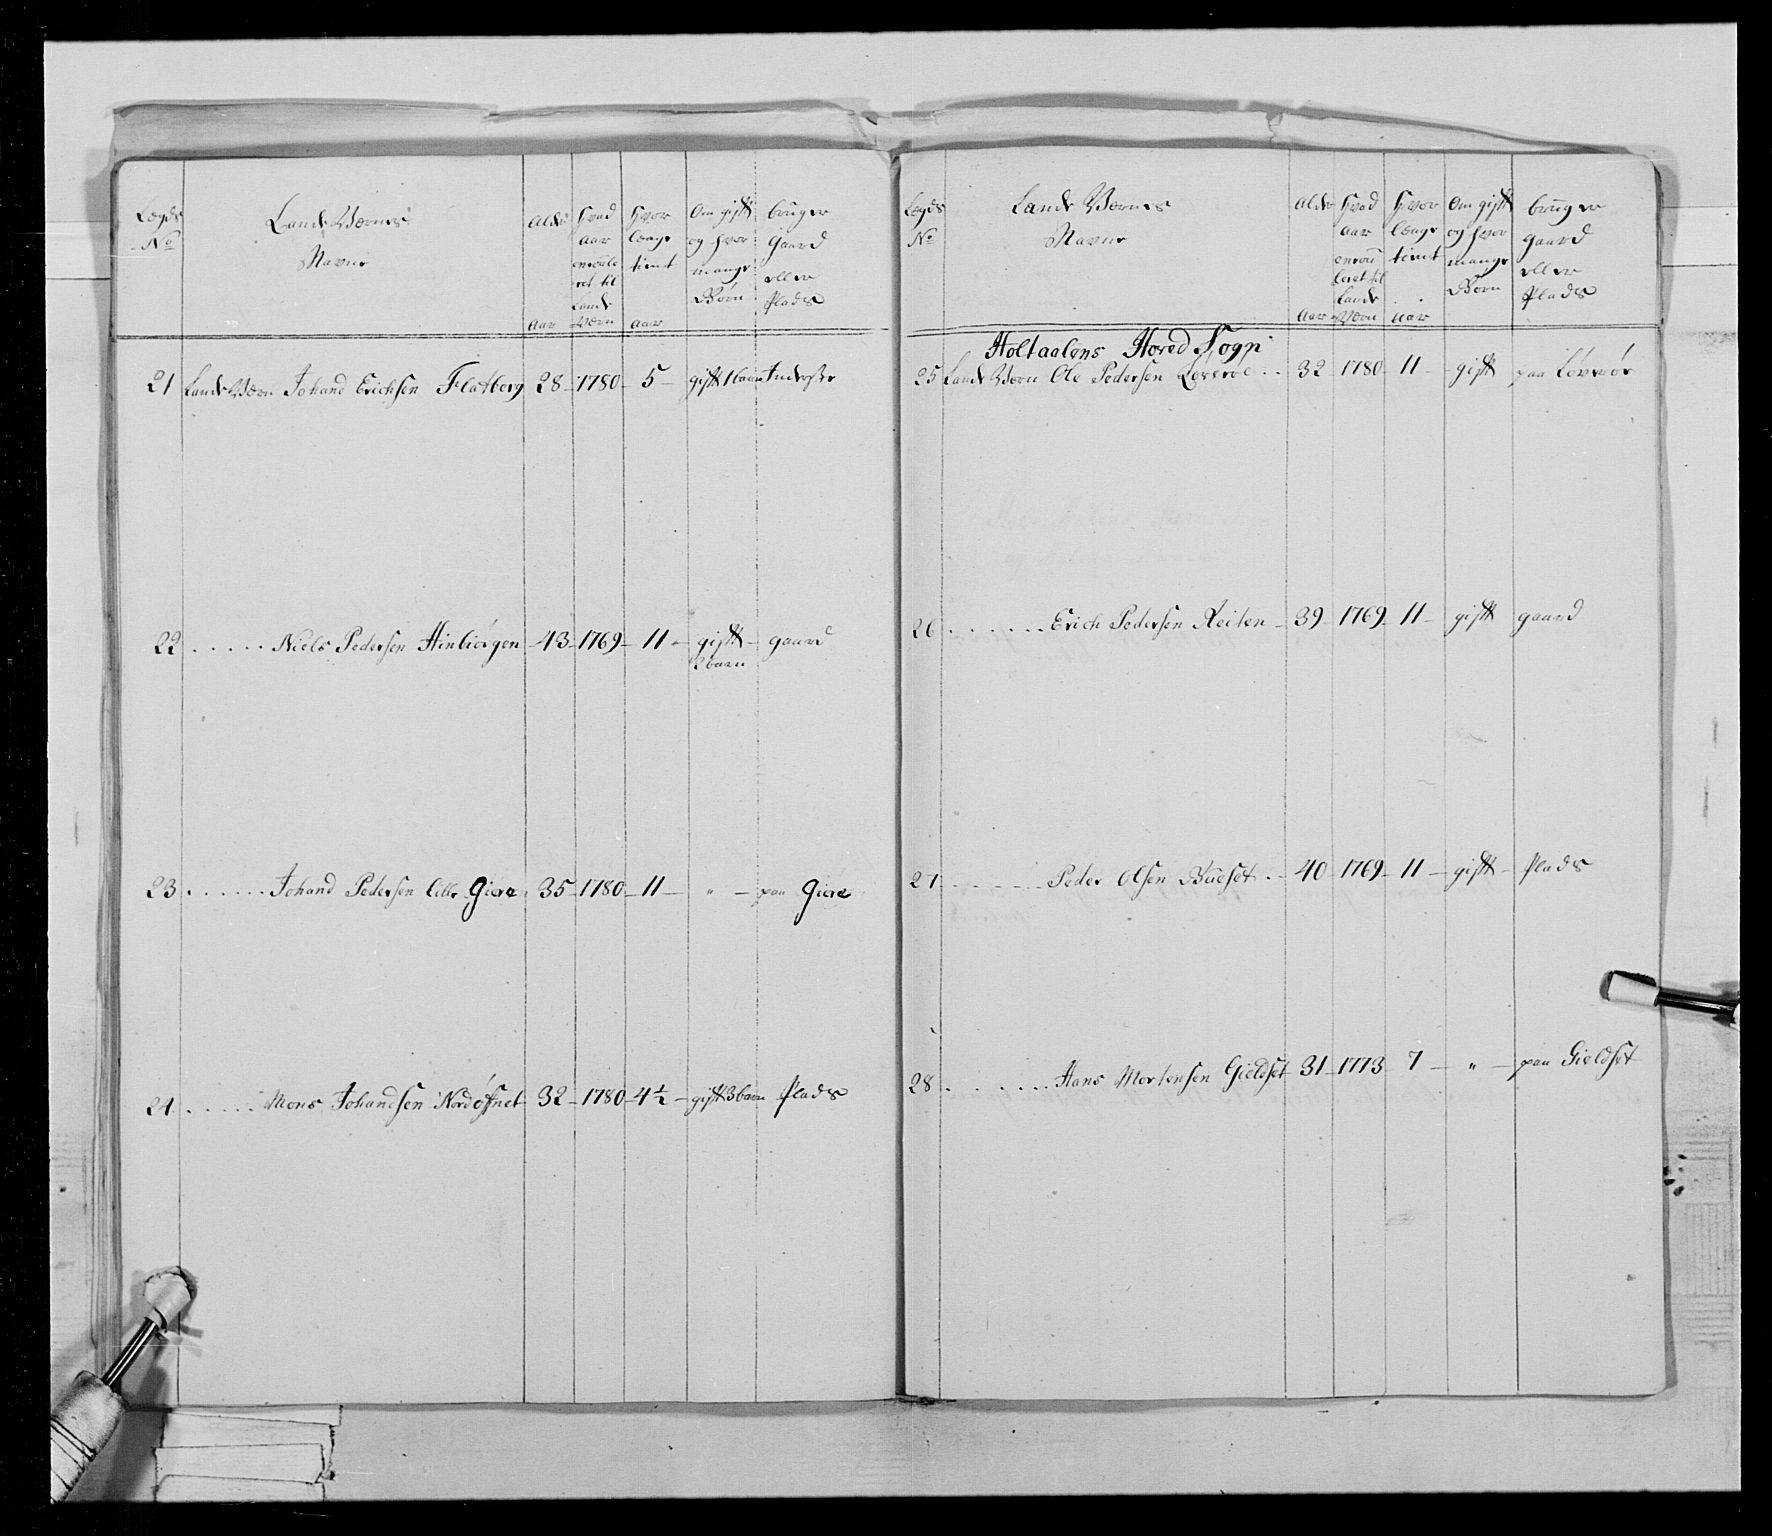 Lægds No | Lande Værnes Navne | Alder Aar | Hvad Aar enroule ret til Lande Værn | Hvor længe tient Aar | Om gift og hvor mange Børn | bruger gaard eller Plads
21 Lande Værn Johand Erichsen Flatberg 28 - 1780 - 5 - gift 1 barn
22 ..... Niels Pedersen Hinbiørgen - 43 - 1769 - 11 - gift - gaard
2 barn
23 ...... Johand Pedersen Lille Giera 35 - 1780 - 11 - " - paa Giera
24 ..... Mons Johandsen Nordøfsnet 32 - 1780 - 4½ - gift 3 barn Plads
Lægds No | Lande Værnes Navne | Alder Aar | Hvad Aar enrou leret til Lande Værn | Hvor længe tient Aar | Om gift og hvor mange Børn | bruger gaard eller Plads
Holtaalens Hoved Sogn
25 Lande Værn Ole Pedersen .. 32 - 1780 - 11 - gift paa
26 ...... Erich Pedersen Reiten - 39 - 1769 - 11 - gift gaard
27 ...... Peder Olsen Bueset .. 40 1769 - 11 - gift - Plads
28 ...... Hans Mortensen Gieldset 31 - 1773 - 7 - " - paa Gieldset